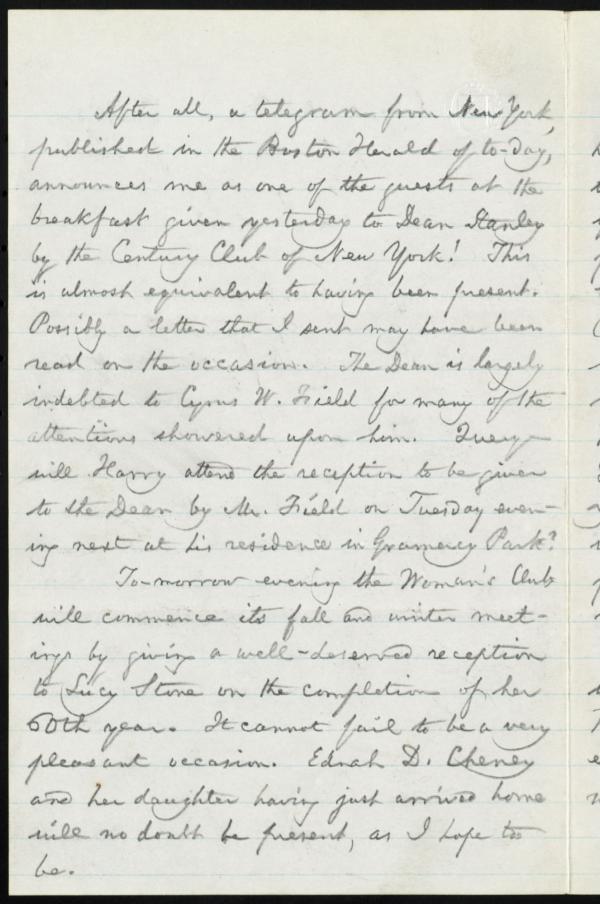 After all, a telegram from New York,
published in the Boston Herald of to-day,
announces me as one of the guests at the
breakfast given yesterday to Dean Stanley
by the Century Club of New York! This
is almost equivalent to having been present.
Possibly a letter that I sent may have been
read on the occasion. The Dean is largely
indebted to Cyrus W. Field for many of the
attentions showered upon him. Query—
will Harry attend the reception to be given
to the Dean by Mr. Field on Tuesday even-
ing next at his residence in Gramercy Park?
To-morrow evening the Woman's Club
will commence its fall and winter meet-
ings by giving a well-deserved reception
to Lucy Stone on the completion of her
60th year. It cannot fail to be a very
pleasant occasion. Ednah D. Cheney
and her daughter having just arrived home
will no doubt be present, as I hope to
be.